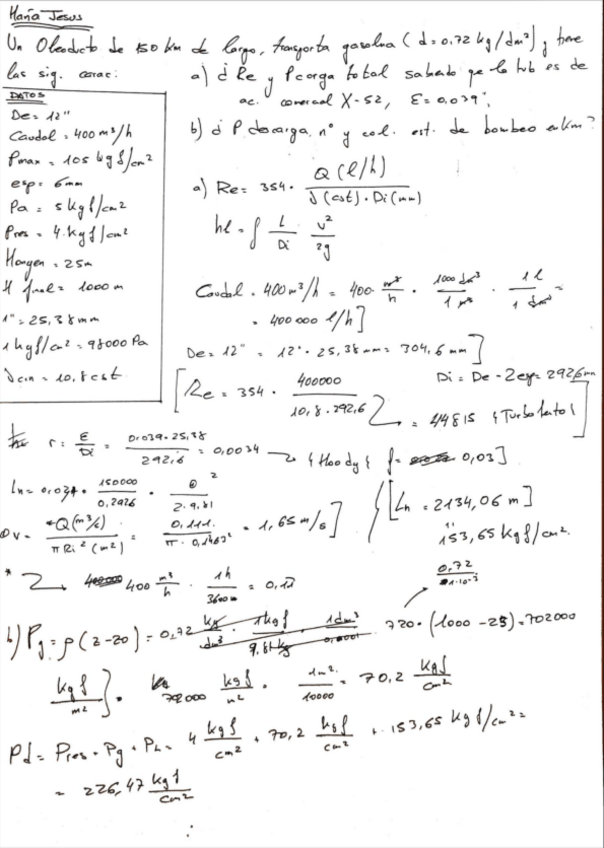 María Jesus
Un Oleoducto de 150 Km de largo, transporta gasolina (d=0.72 kg/dm³) y tiene
las sig. carac:
a) ¿ Re y Pcarga total sabiendo qe la tub es de
ac. comercial X-52, ε=0,039";
b) ¿ P descarga, n° y col. est. de bombeo en km?
DATOS
De = 12"
Caudal = 400 m³/h
Pmax = 105 kgf/cm²
esp = 6mm
Pa = 5 kgf/cm²
Pres = 4 kgf/cm²
Margen = 25m
H final = 1000 m
1" = 25,38 mm
1 kgf/cm² = 98000 Pa
νcin = 10,8 cst
a) Re = 354 · Q (l/h) / ν(cst) · Di(mm)
hl = f L/Di v²/2g
Caudal = 400 m³/h = 400 m³/h · 1000 dm³/1 m³ · 1 l/1 dm³ =
= 400 000 l/h ]
De = 12" = 12" · 25,38 mm = 304,6 mm ]
Di = De - 2esp = 292,6 mm
[ Re = 354 · 400000 / 10,8 · 292,6 = 44815 { Turbulento } ]
r = ε/Di = 0,039 · 25,38 / 292,6 = 0,0034 → { Moody } f = 0,03 ]
Ln = 0,03 · 150000/0,2926 · v²/2·9,81
{ [ Ln = 2134,06 m ]
v = Q(m³/s) / π Ri² (m²) = 0,111 / π · 0,1463² = 1,65 m/s ]
153,65 Kgf/cm²
* → 400 m³/h · 1h/3600s = 0,11
0,72 / 1·10⁻³
b) Pg = ρ (z - z0) = 0,72 kg/dm³ · 1kgf/9,81kg · 1dm³/0,0001 720 · (1000 - 25) = 702000
kgf/m² } · 702000 kgf/m² · 1m²/10000 = 70,2 kgf/cm²
Pd = Pres + Pg + Ph = 4 kgf/cm² + 70,2 kgf/cm² + 153,65 kgf/cm² =
= 226,47 kgf/cm²